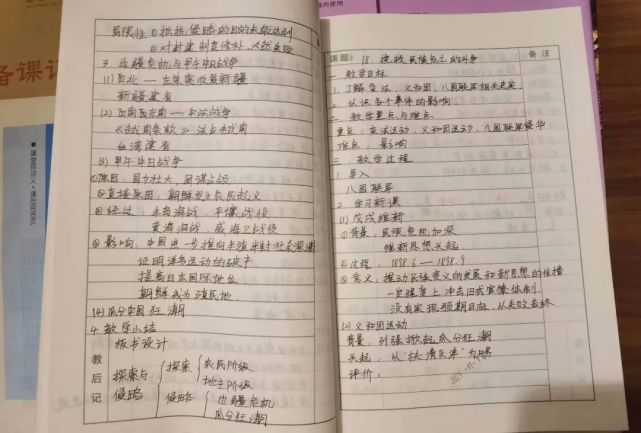 备课
课堂用讲义·课后用试页
局限性 ①抵抗侵略的目的未能达到
②对封建制度修补,必然失败
3. 边疆危机与甲午中日战争
(1) 西北 — 左宗棠收复新疆
新疆建省
(2) 西南东南 — 中法战争
《越南条款》 法占越南
台湾建省
(3) 甲午中日战争
①原因:国力壮大,图谋占领
②直接原因:朝鲜发生农民起义
③经过:丰岛海战、平壤战役
黄海海战、威海卫战役
④影响:中国进一步推向半殖半封社会深渊
证明洋务运动的破产
提高日本国际地位
朝鲜成为殖民地
(4) 瓜分中国狂潮
4. 教学小结
板书设计
教后记
探索与侵略
探索 农民阶级
地主阶级
侵略 边疆危机
瓜分狂潮
内使用
课题: 18. 挽救民族危亡的斗争
备注
一 教学目标
1. 了解变法、义和团、八国联军相关史实
2. 认识各个事件的影响
二 教学重点与难点
重点:变法运动、义和团运动、八国联军侵华
难点:影响
三 教学过程
1. 导入
八国联军
2. 学习新课
(1) 戊戌维新
①背景:民族危机加深
维新思想兴起
②过程:1898.6 — 1898.9
③意义:推动民族意义的发展和新思想的传播
一定程度上冲击旧式官僚体制
没有实现预期目标,以失败告终
(2) 义和团运动
背景:列强掀起瓜分狂潮
兴起:从“扶清灭洋”为口号
评价: